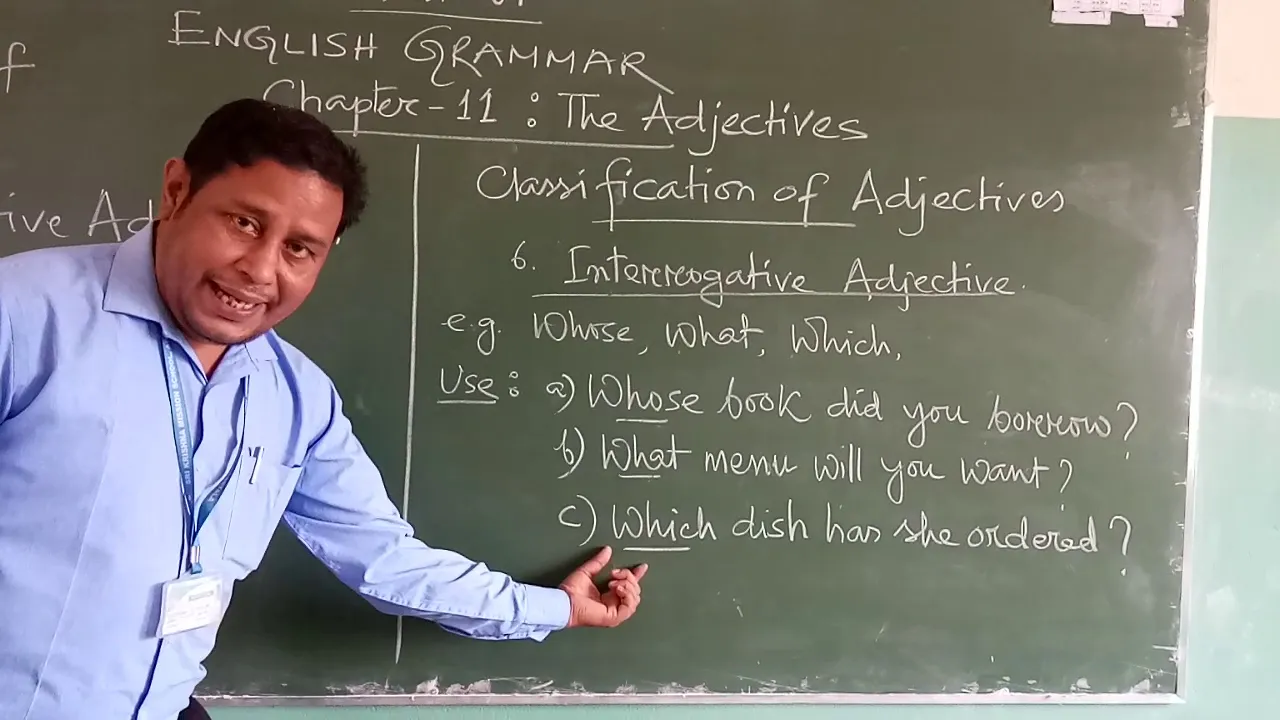 ENGLISH GRAMMAR
Chapter-11 : The Adjectives
f
ive Ad
Classification of Adjectives
6. Interrogative Adjective.
e.g. Whose, What, Which,
Use: a) Whose book did you borrow?
b) What menu will you want?
c) Which dish has she ordered?
SRI KRISHNA MISSION SCHOOL